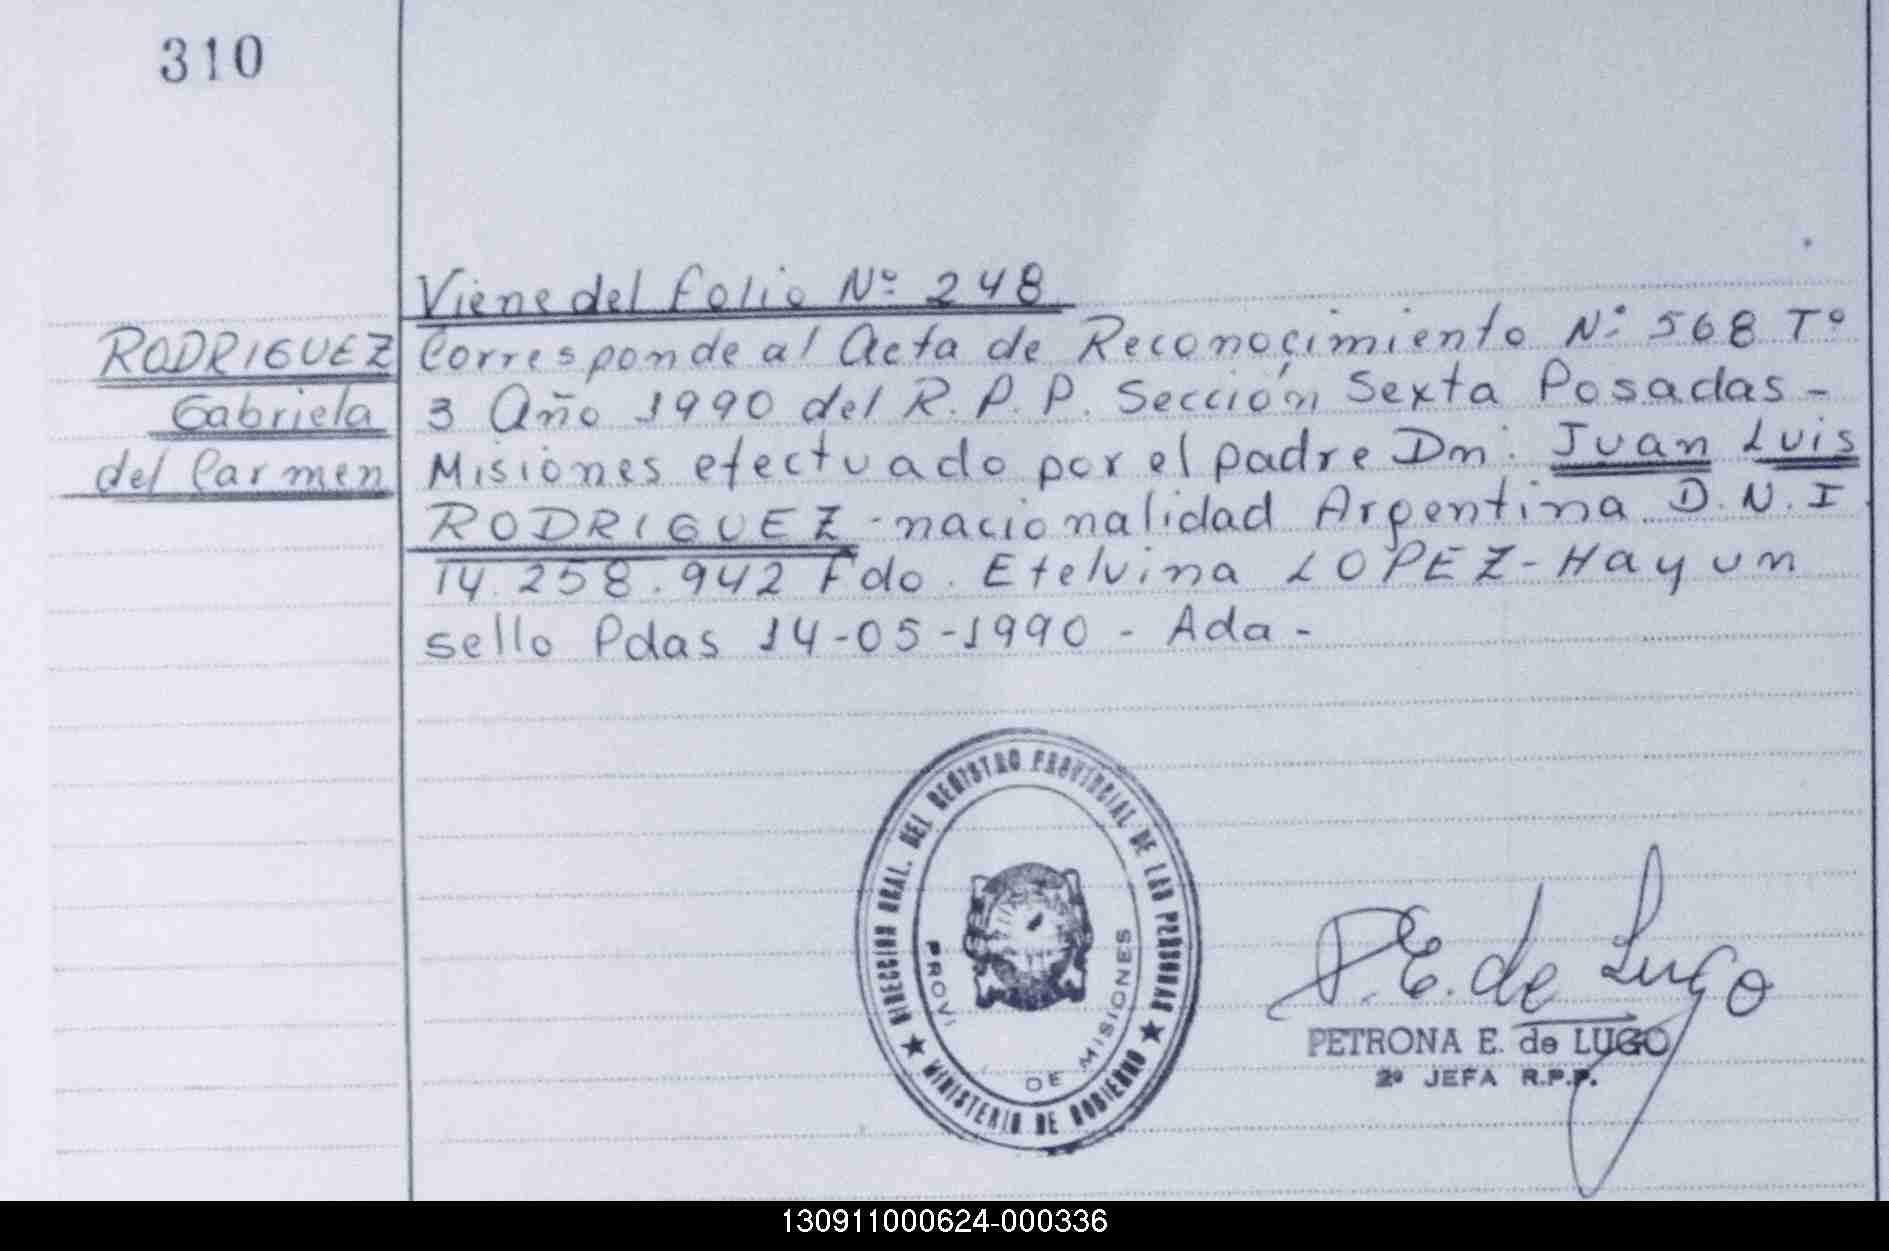 310
Viene del folio Nº 248
RODRIGUEZ
Gabriela
del Carmen
Corresponde al Acta de Reconocimiento Nº 568 Tº
3 Año 1990 del R.P.P. Sección Sexta Posadas -
Misiones efectuado por el padre Dn: Juan Luis
RODRIGUEZ - nacionalidad Argentina D.N.I
14.258.942 Fdo. Etelvina LOPEZ - Hay un
sello Pdas 14-05-1990 - Ada -
DIRECCION GRAL. DEL REGISTRO PROVINCIAL DE LAS PERSONAS
PROVI DE MISIONES
★ MINISTERIO DE GOBIERNO ★
P.E. de Lugo
PETRONA E. de LUGO
2º JEFA R.P.P.
130911000624-000336